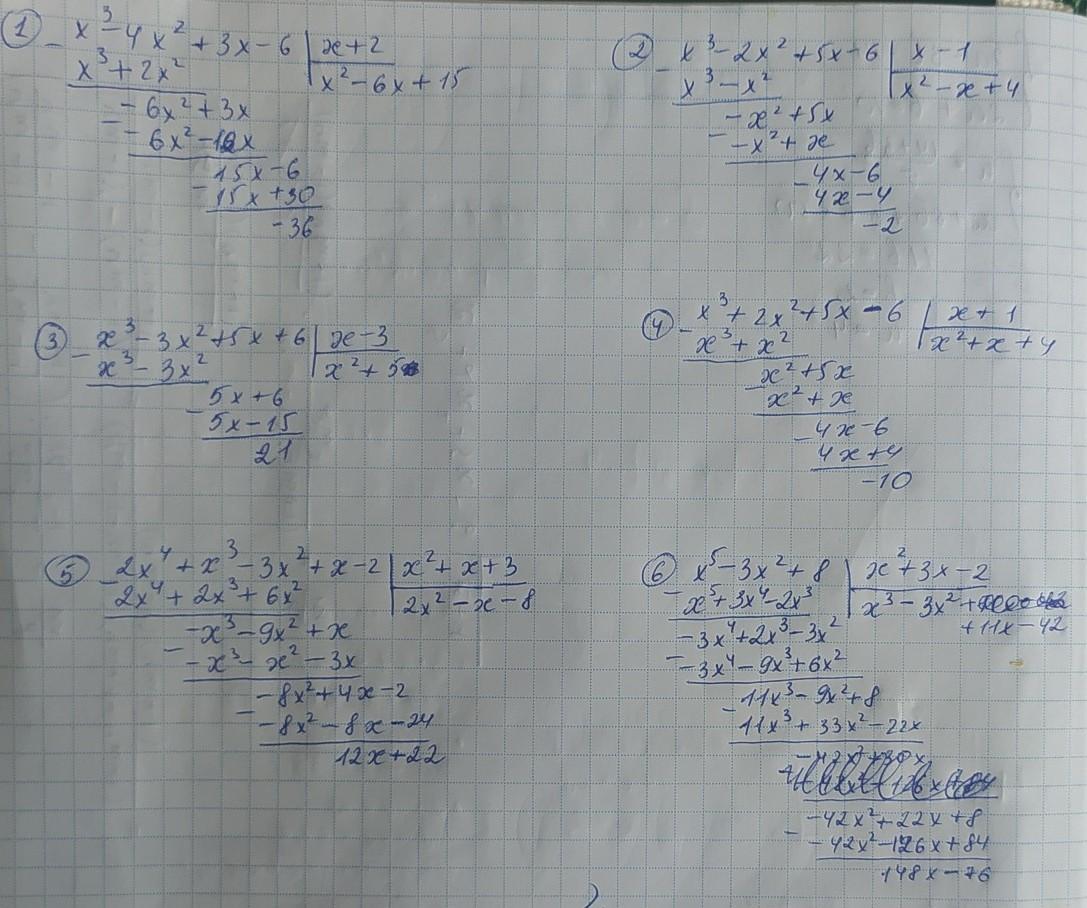 ① x³ - 4x² + 3x - 6 | x + 2
- x³ + 2x² | x² - 6x + 15
- 6x² + 3x
- - 6x² - 12x
15x - 6
- 15x + 30
- 36
② x³ - 2x² + 5x - 6 | x - 1
- x³ - x² | x² - x + 4
- x² + 5x
- - x² + x
4x - 6
- 4x - 4
- 2
③ x³ - 3x² + 5x + 6 | x - 3
- x³ - 3x² | x² + 5
5x + 6
- 5x - 15
21
④ x³ + 2x² + 5x - 6 | x + 1
- x³ + x² | x² + x + 4
x² + 5x
- x² + x
4x - 6
- 4x + 4
- 10
⑤ 2x⁴ + x³ - 3x² + x - 2 | x² + x + 3
- 2x⁴ + 2x³ + 6x² | 2x² - x - 8
- x³ - 9x² + x
- - x³ - x² - 3x
- 8x² + 4x - 2
- - 8x² - 8x - 24
12x + 22
⑥ x⁵ - 3x² + 8 | x² + 3x - 2
- x⁵ + 3x⁴ - 2x³ | x³ - 3x²
+ 11x - 42
- 3x⁴ + 2x³ - 3x²
- - 3x⁴ - 9x³ + 6x²
11x³ - 9x² + 8
- 11x³ + 33x² - 22x
- 42x² + 22x + 8
- - 42x² - 126x + 84
148x - 76